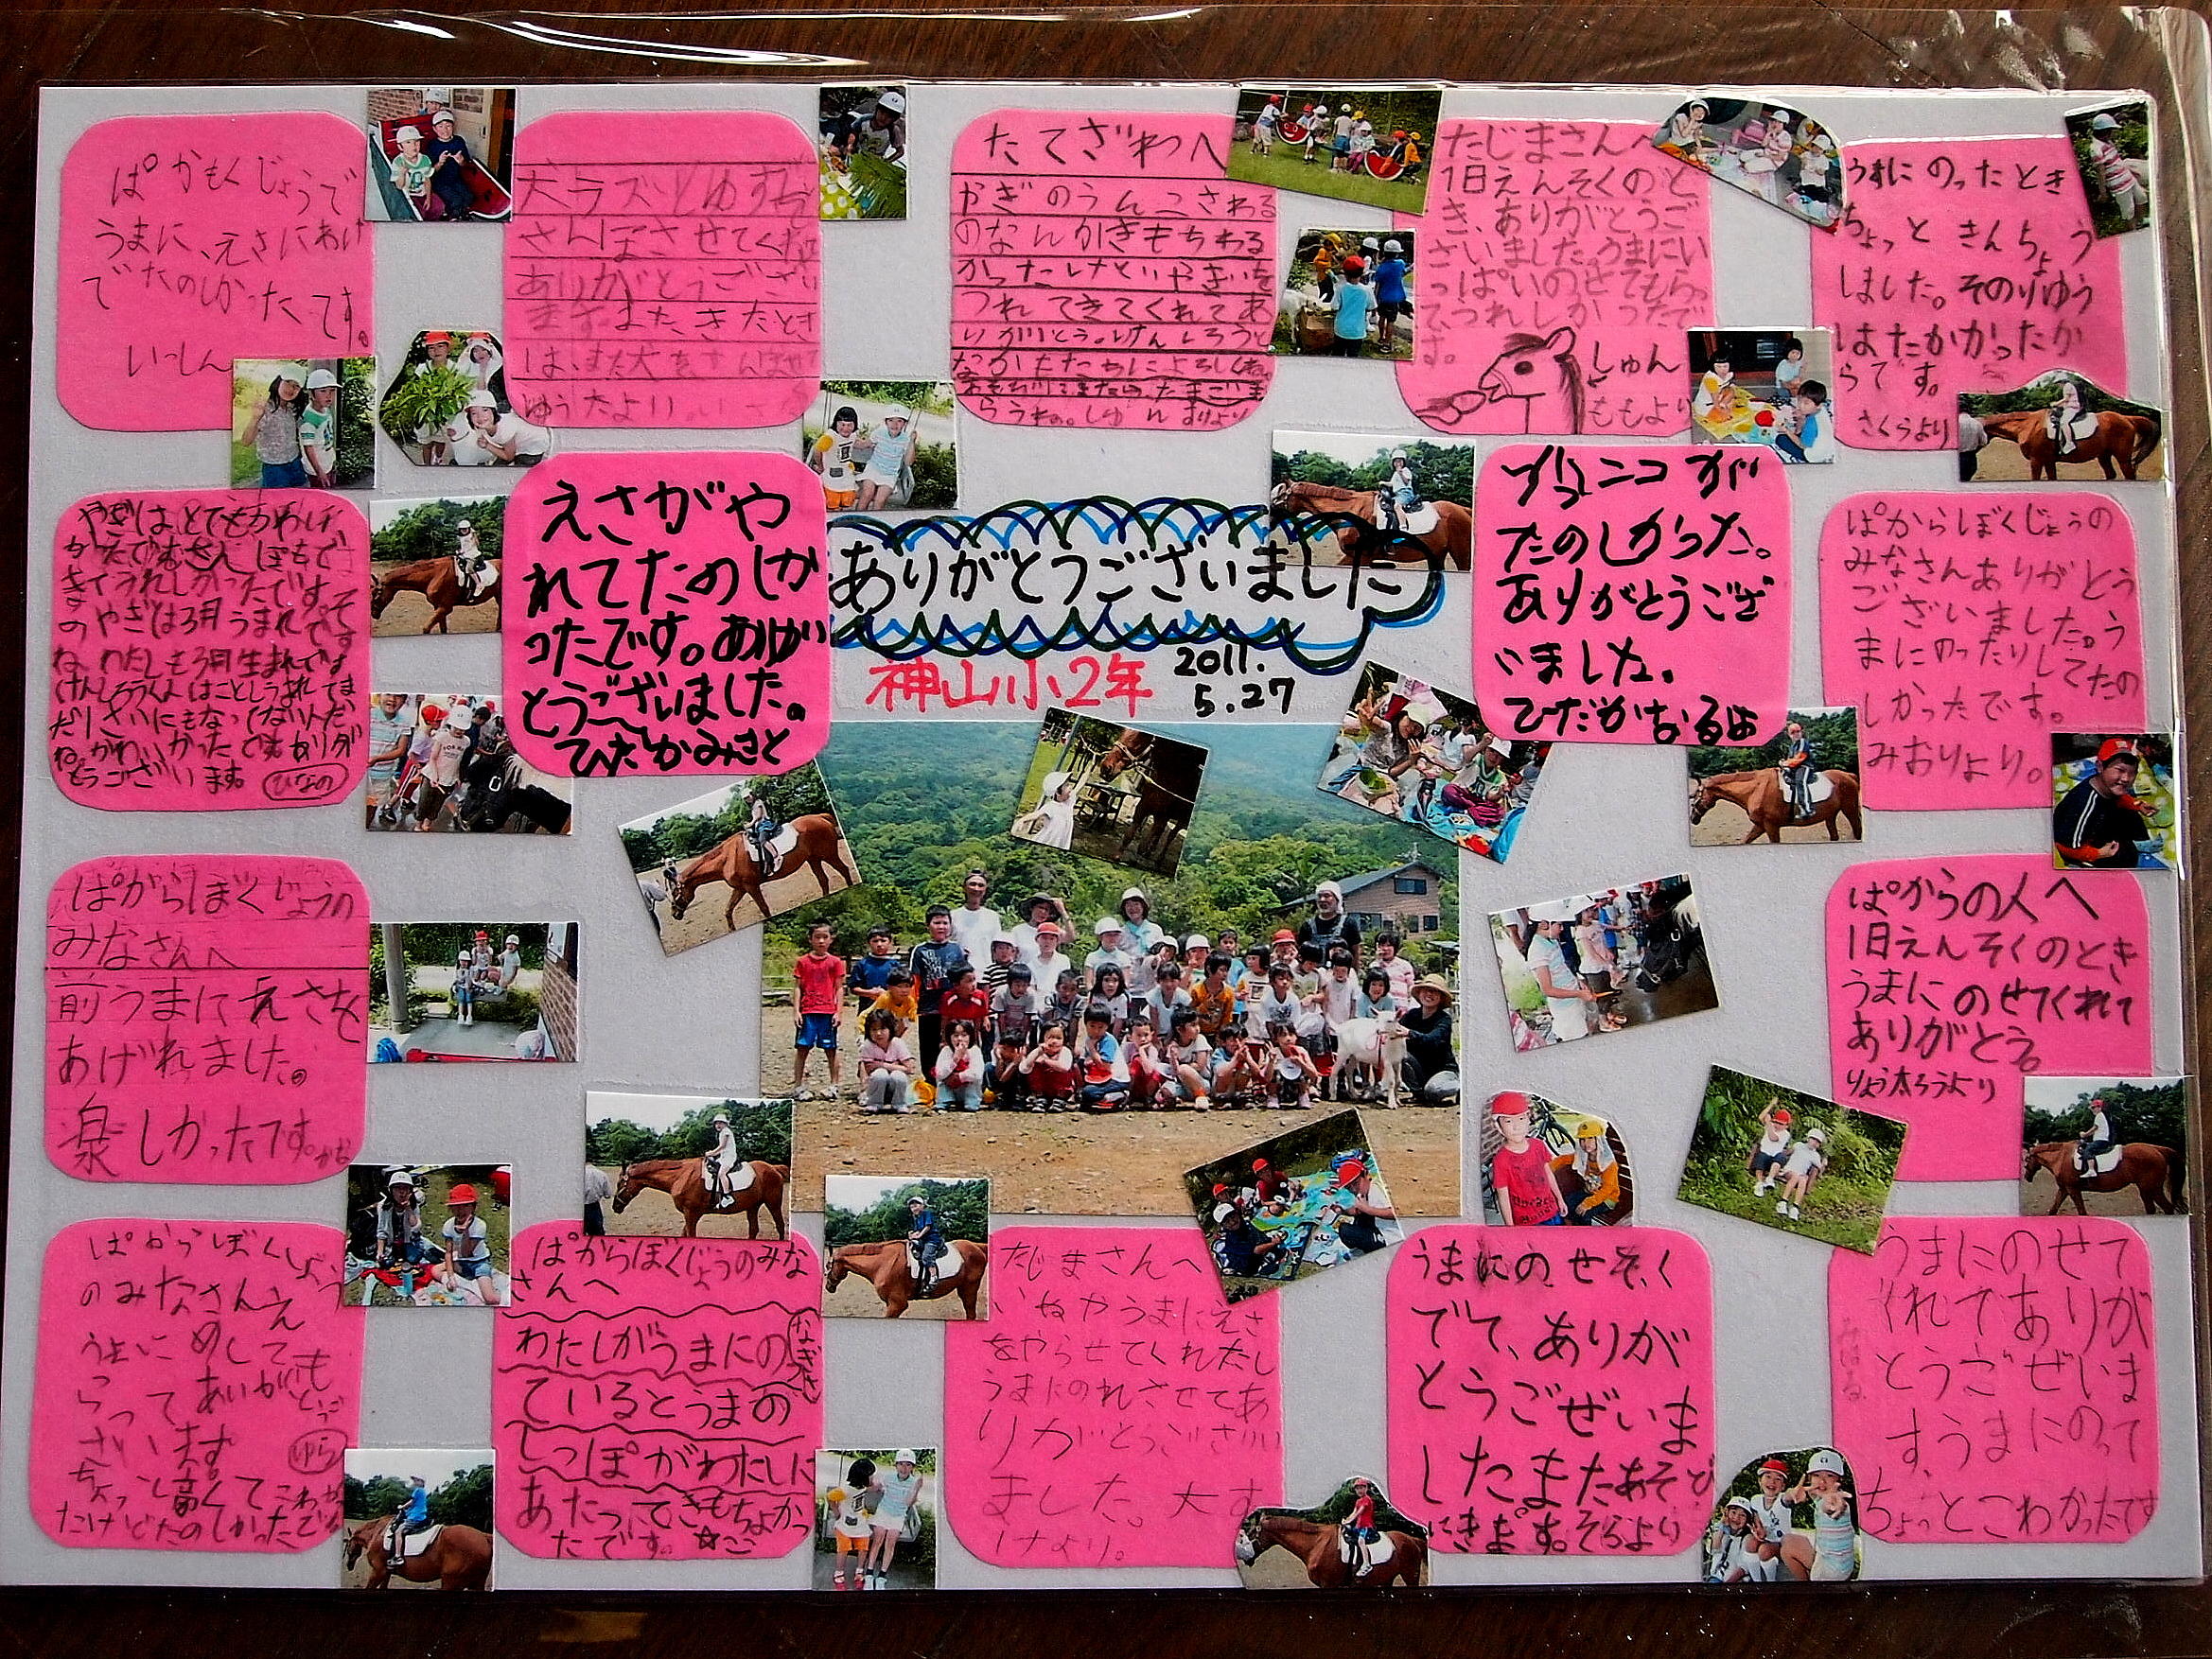 ぱかもくじょうで
うまに、えさにあけ
でたのしかったです。
いっしん
さんぽさせてくだ
ありがとうござい
ます。また、きたとき
は、また犬をさんぽさせて
ゆうたより。
たてざわへ
やぎのうんこさわる
のなんかきもちわる
かったけどいやぎいを
つれてきてくれてあ
りがとう。けんしろうと
たじまさんへ
1日えんそくのと
き、ありがとうご
ざいました。うまにい
っぱいのせてもらっ
て、うれしかったで
す。
しゅん
ももより
うまにのったとき
ちょっときんちょう
しました。そのりゆう
はたかかったか
らです。
さくらより
やぎはとてもかわいく
きてうれしかったです。そ
のやぎは3月うまれです
ね。わたしも3月生まれです。
ひなの
えさがや
れてたのしか
ったです。ありが
とうございました。
ひだかみさと
ありがとうございました
神山小2年
2011.
5.27
たのしかった。
ありがとうござ
いました。
ひだかなるみ
ぱからぼくじょうの
みなさんありがとう
ございました。う
まにのったりしてたの
しかったです。
みおりより。
ぱからぼくじょうの
みなさんへ
前うまにえさを
あげれました。
楽しかったです。かお
ぱからの人へ
1日えんそくのとき
うまにのせてくれて
ありがとう。
りょう太ろうより
ぱからぼくじょう
のみなさんえ
うまにめしても
らってありがとうご
ざいます
ゆら
ちょっと高くてこわか
ったけどたのしかったです
ぱからぼくじょうのみな
さんへ
わたしがうまにの
ているとうまの
しっぽがわたしに
あたってきもちよかっ
たです。☆ニコ
なぎさ
たじまさんへ
いぬやうまにえさ
をやらせてくれたし
うまにのれさせてあ
りがとうござい
ました。大す
けより。
うまにのせそく
でて、ありが
とうごぜいま
したまたあそび
にきます。そらより
うまにのせて
くれてありが
とうごぜいま
す、うまにのって
ちょっとこわかったです
みはる